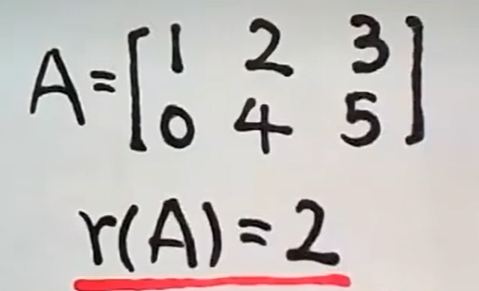 A = [1 2 3
0 4 5]
r(A) = 2